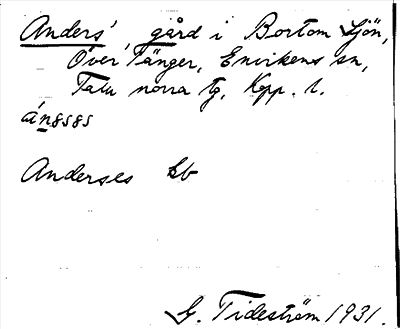 Anders', gård i Bortom Sjön,
Över Tänger, Envikens sn,
Falu norra tg, Kopp. l.
ángsgs
Anderses Lb
G. Tideström 1931.